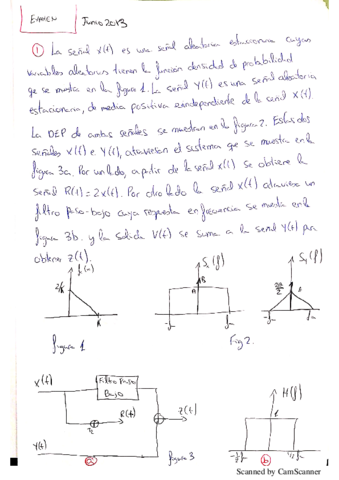 EXAMEN
Junio 2013
① La señal x(t) es una señal aleatoria estacionaria cuyas
variables aleatorias tienen la función densidad de probabilidad
que se muestra en la figura 1. La señal Y(t) es una señal aleatoria
estacionaria, de media positiva e independiente de la señal X(t).
La DEP de ambas señales se muestran en la figura 2. Estas dos
señales X(t) e Y(t), atraviesan el sistema que se muestra en la
figura 3a. Por un lado, a partir de la señal x(t) se obtiene la
señal R(t)=2x(t). Por otro lado la señal x(t) atraviesa un
filtro paso-bajo cuya respuesta en frecuencia se muestra en la
figura 3b. y la salida V(t) se suma a la señal Y(t) para
obtener z(t).
2/k
k
figura 1
Sx(f)
B
A
Fig 2.
Sy(f)
A
X(t)
Filtro Paso
Bajo
R(t)
Z(t)
Y(t)
figura 3
a
H(f)
b
Scanned by CamScanner